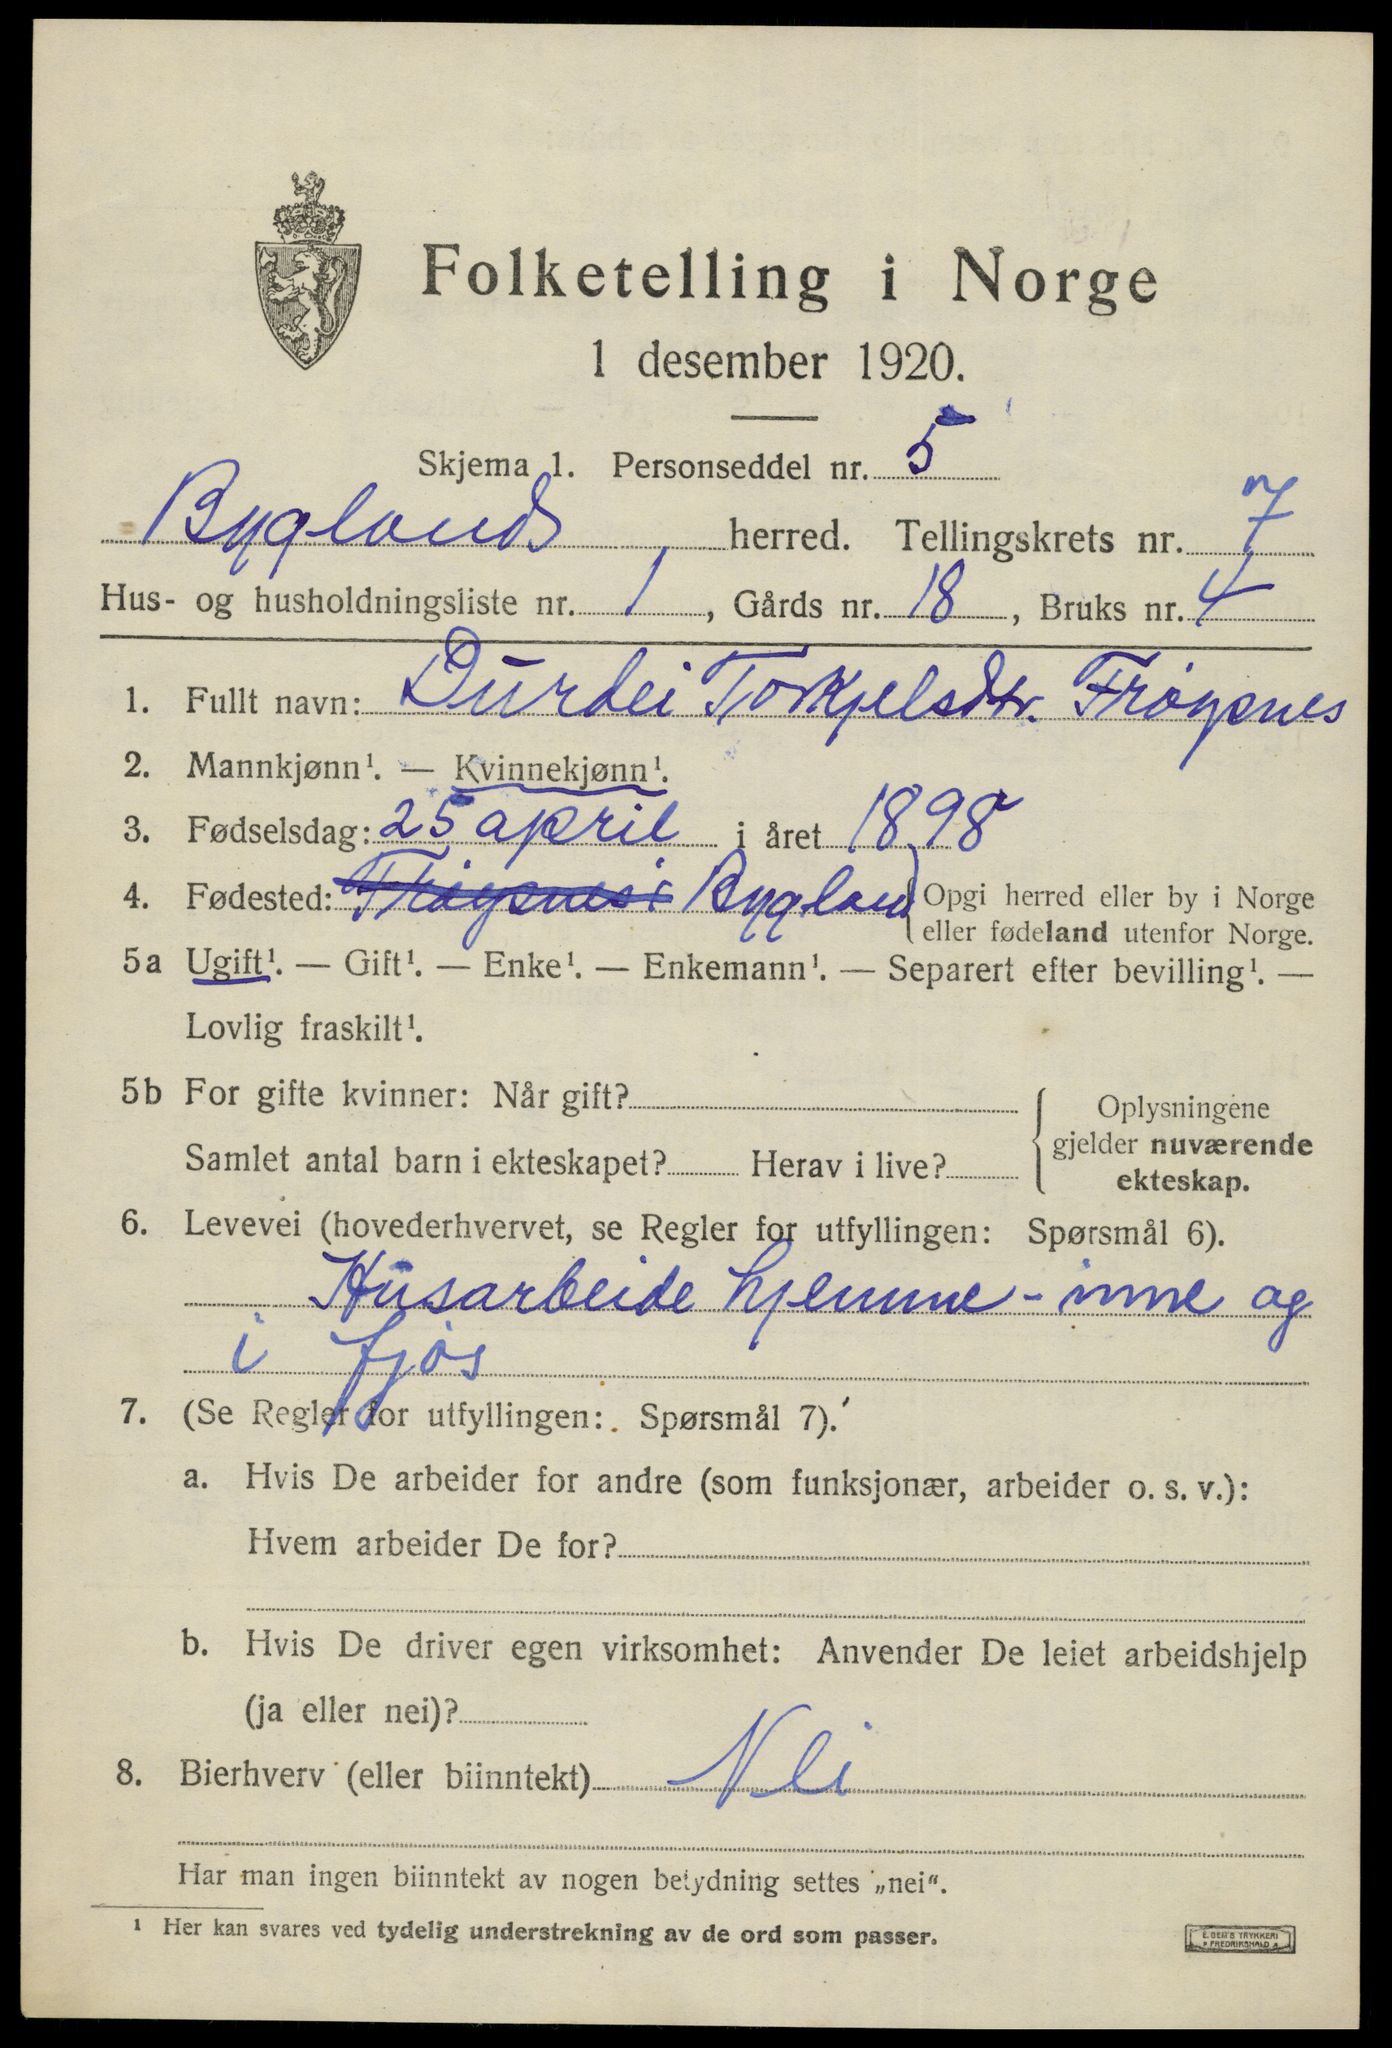 Folketelling i Norge
1 desember 1920.
Skjema 1. Personseddel nr. 5
Byglands herred. Tellingskrets nr. 7
Hus- og husholdningsliste nr. 1, Gårds nr. 18, Bruks nr. 4
1. Fullt navn: Durdei Torkjelsdtr. Frøysnes
2. Mannkjønn¹. — Kvinnekjønn¹.
3. Fødselsdag: 25 april i året 1898
4. Fødested: Frøysnes i Bygland { Opgi herred eller by i Norge
eller fødeland utenfor Norge.
5a Ugift¹. — Gift¹. — Enke¹. — Enkemann¹. — Separert efter bevilling¹. —
Lovlig fraskilt¹.
5b For gifte kvinner: Når gift? { Oplysningene
gjelder nuværende
Samlet antal barn i ekteskapet? Herav i live?
ekteskap.
6. Levevei (hovederhvervet, se Regler for utfyllingen: Spørsmål 6).
Husarbeide hjemme - inne og
i fjøs
7. (Se Regler for utfyllingen: Spørsmål 7).
a. Hvis De arbeider for andre (som funksjonær, arbeider o. s. v.):
Hvem arbeider De for?
b. Hvis De driver egen virksomhet: Anvender De leiet arbeidshjelp
(ja eller nei)?
8. Bierhverv (eller biinntekt) Nei
Har man ingen biinntekt av nogen betydning settes „nei".
¹ Her kan svares ved tydelig understrekning av de ord som passer.
E. SEM'S TRYKKERI
FREDRIKSHALD